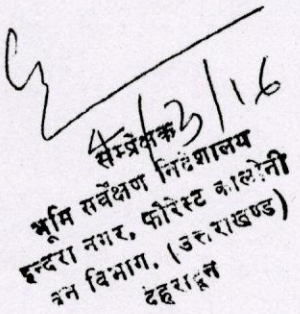 4/3/16
सम्प्रेक्षक
भूमि सर्वेक्षण निदेशालय
इन्दरा नगर, फोरेस्ट कालोनी
वन विभाग, (उत्तराखण्ड)
देहरादून